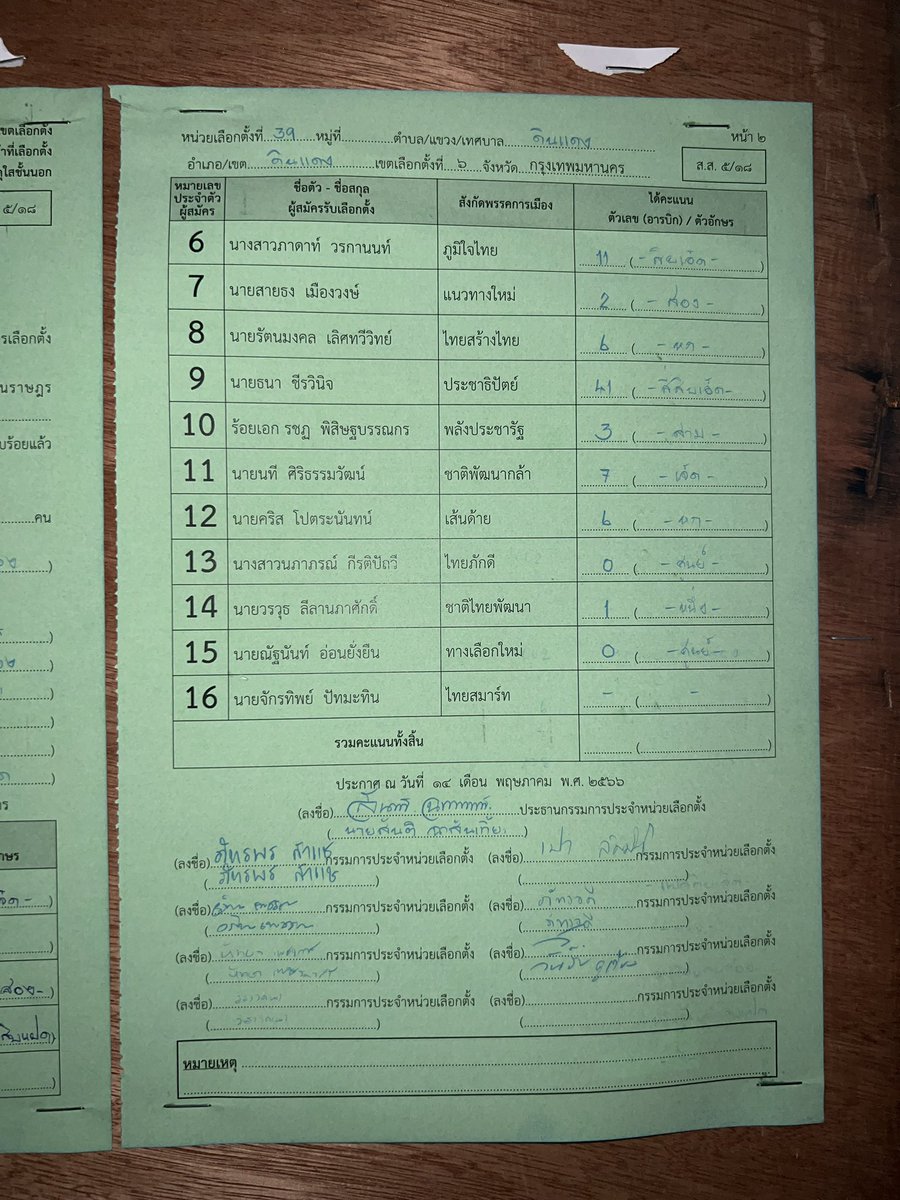 เขตเลือกตั้ง
ที่เลือกตั้ง
๕/๑๘
รเลือกตั้ง
นราษฎร
บร้อยแล้ว
คน
หน่วยเลือกตั้งที่ 39 หมู่ที่ ตำบล/แขวง/เทศบาล ดินแดง หน้า ๒
อำเภอ/เขต ดินแดง เขตเลือกตั้งที่ ๖ จังหวัด กรุงเทพมหานคร ส.ส. ๕/๑๘
หมายเลขประจำตัวผู้สมัคร ชื่อตัว - ชื่อสกุล ผู้สมัครรับเลือกตั้ง สังกัดพรรคการเมือง ได้คะแนน ตัวเลข (อารบิก) / ตัวอักษร
6 นางสาวภาดาท์ วรกานนท์ ภูมิใจไทย 11 (-สิบเอ็ด-)
7 นายสายธง เมืองวงษ์ แนวทางใหม่ 2 (-สอง-)
8 นายรัตนมงคล เลิศทวีวิทย์ ไทยสร้างไทย 6 (-หก-)
9 นายธนา ชีรวินิจ ประชาธิปัตย์ 41 (-สี่สิบเอ็ด-)
10 ร้อยเอก รชฏ พิสิษฐบรรณกร พลังประชารัฐ 3 (-สาม-)
11 นายนที ศิริธรรมวัฒน์ ชาติพัฒนากล้า 7 (-เจ็ด-)
12 นายคริส โปตระนันทน์ เส้นด้าย 6 (-หก-)
13 นางสาวนภาภรณ์ กีรติปัถวี ไทยภักดี 0 (-ศูนย์-)
14 นายวรวุธ ลีลานภาศักดิ์ ชาติไทยพัฒนา 1 (-หนึ่ง-)
15 นายณัฐนันท์ อ่อนยั่งยืน ทางเลือกใหม่ 0 (-ศูนย์-)
16 นายจักรทิพย์ ปัทมะทิน ไทยสมาร์ท - (-)
รวมคะแนนทั้งสิ้น ( )
ประกาศ ณ วันที่ ๑๔ เดือน พฤษภาคม พ.ศ. ๒๕๖๖
(ลงชื่อ) ประธานกรรมการประจำหน่วยเลือกตั้ง
(นายสันติ )
(ลงชื่อ) กรรมการประจำหน่วยเลือกตั้ง (ลงชื่อ) กรรมการประจำหน่วยเลือกตั้ง
(ลงชื่อ) กรรมการประจำหน่วยเลือกตั้ง (ลงชื่อ) กรรมการประจำหน่วยเลือกตั้ง
(ลงชื่อ) กรรมการประจำหน่วยเลือกตั้ง (ลงชื่อ) กรรมการประจำหน่วยเลือกตั้ง
(ลงชื่อ) กรรมการประจำหน่วยเลือกตั้ง (ลงชื่อ) กรรมการประจำหน่วยเลือกตั้ง
หมายเหตุ